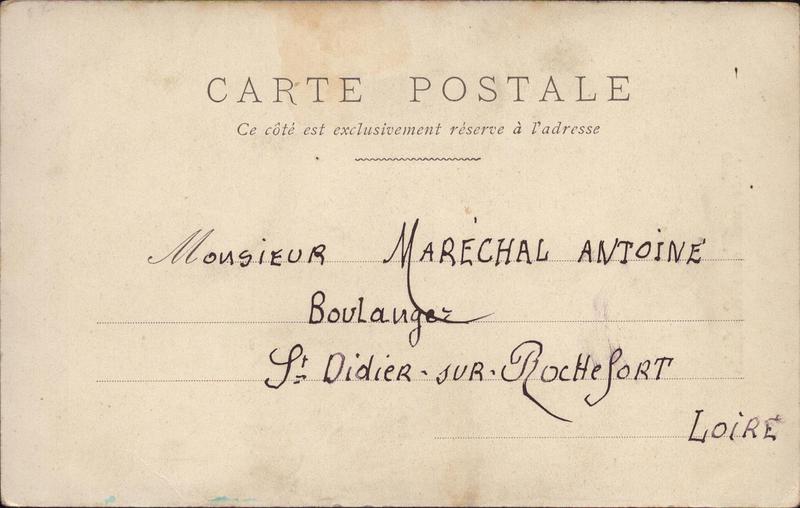 CARTE POSTALE
Ce côté est exclusivement réserve à l'adresse
Monsieur MARÉCHAL ANTOINE
Boulanger
St Didier-sur-Rochefort
LOIRE